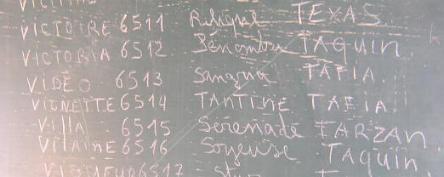 VICTOIRE 6511 TEXAS
VICTORIA 6512 Pénombre TAQUIN
VIDEO 6513 TAFIA
VIGNETTE 6514 TANTINE TAFIA
Villa 6515 Sérénade TARZAN
Vilaine 6516 Soyeuse Taquin
6517